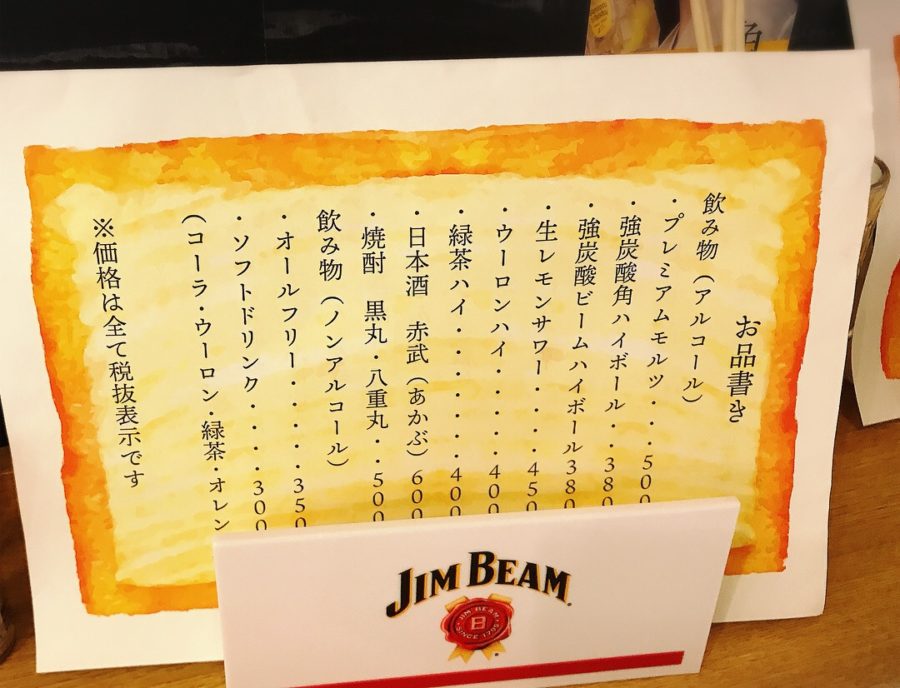 お品書き
飲み物（アルコール）
・プレミアムモルツ・・・500
・強炭酸角ハイボール・・380
・強炭酸ビームハイボール380
・生レモンサワー・・・・450
・ウーロンハイ・・・・・400
・緑茶ハイ・・・・・・・400
・日本酒　赤武（あかぶ）600
・焼酎　黒丸・八重丸・・500
飲み物（ノンアルコール）
・オールフリー・・・・・350
・ソフトドリンク・・・・300
（コーラ・ウーロン・緑茶・オレン
※価格は全て税抜表示です
JIM BEAM
JIM BEAM
B
SINCE 1795